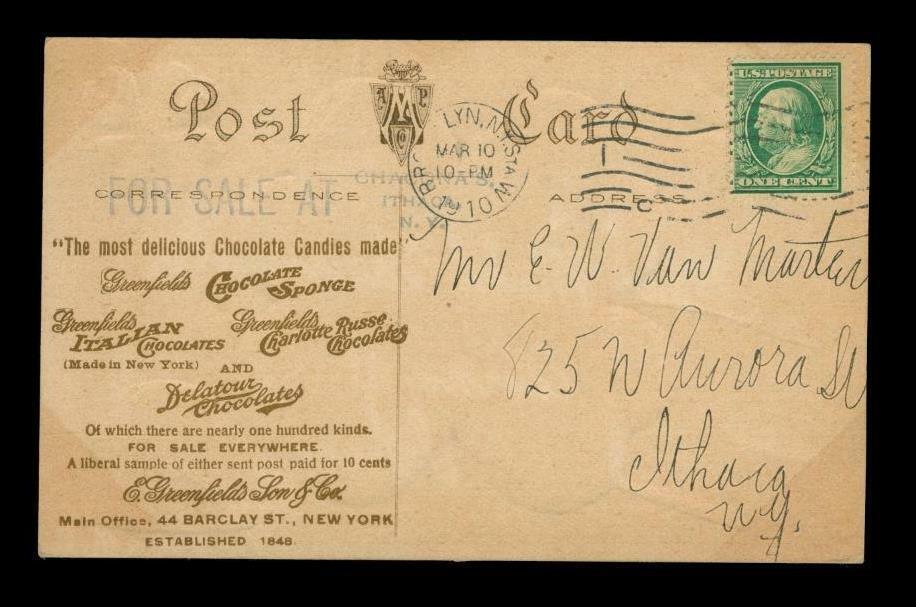 Post Card
A M P
Co
U.S. POSTAGE
ONE CENT
BROOKLYN, N.Y. STA W
MAR 10
10-PM
1910
C
FOR SALE AT
ITHACA
N. Y.
CORRESPONDENCE
ADDRESS
"The most delicious Chocolate Candies made"
Greenfield's CHOCOLATE SPONGE
Greenfield's ITALIAN CHOCOLATES
(Made in New York)
Greenfield's Charlotte Russe Chocolates
AND
Delatour Chocolates
Of which there are nearly one hundred kinds.
FOR SALE EVERYWHERE.
A liberal sample of either sent post paid for 10 cents
E. Greenfield's Son & Co.
Main Office, 44 BARCLAY ST., NEW YORK
ESTABLISHED 1848.
Mr E. W. Van Marter
825 N Aurora St
Ithaca
N.Y.